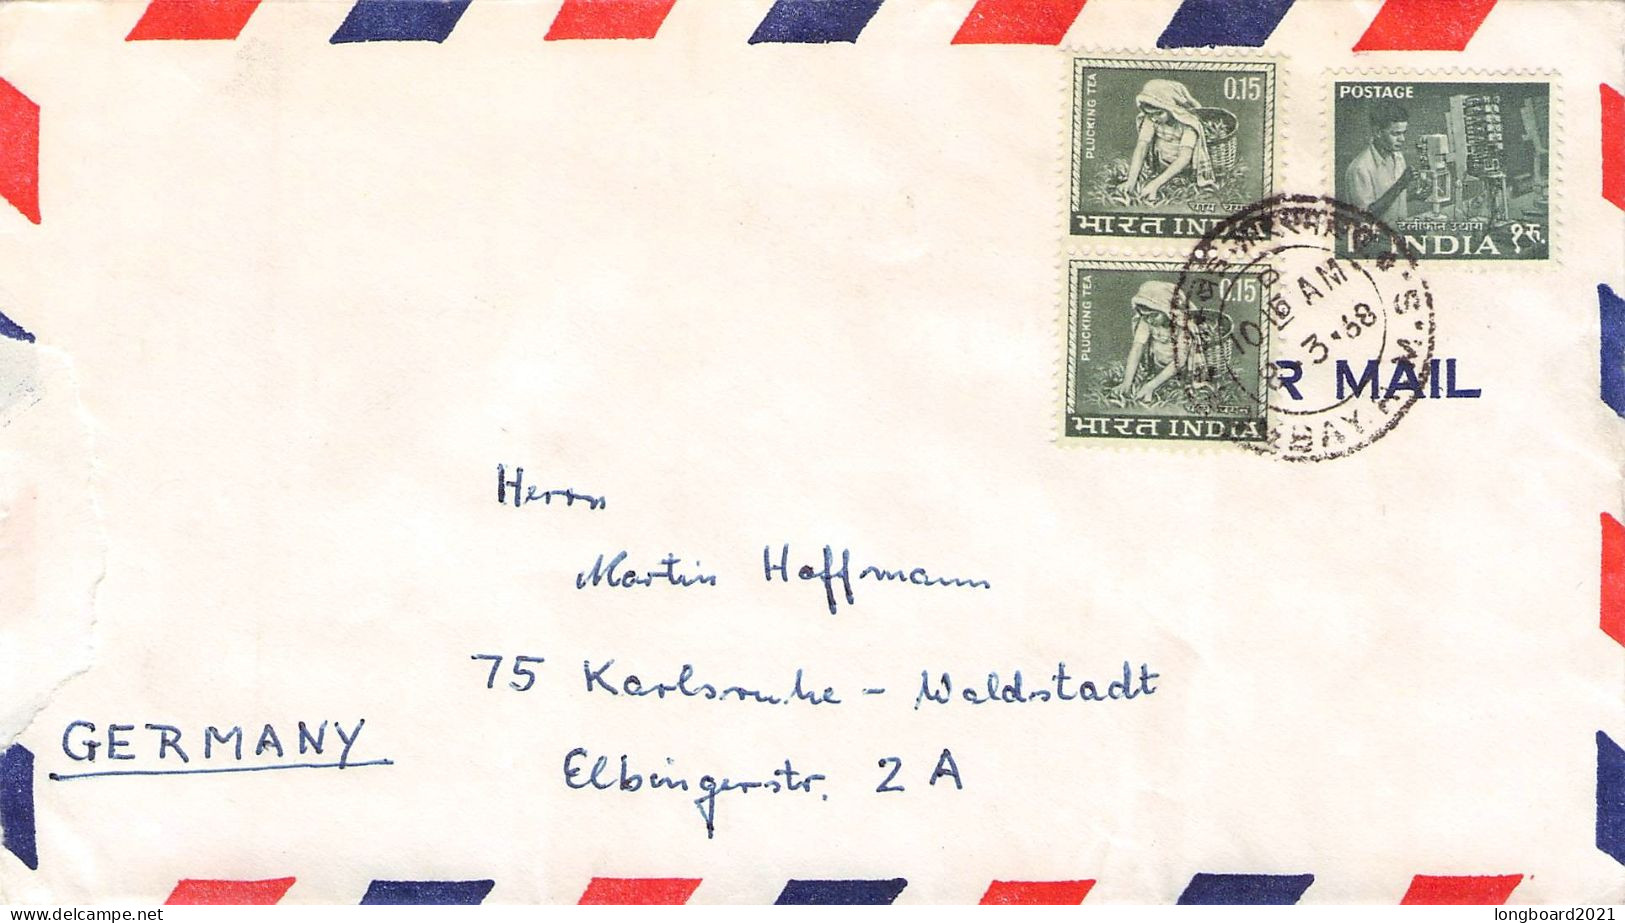 PLUCKING TEA
0.15
चाय चयन
भारत INDIA
POSTAGE
टेलीफोन उद्योग
INDIA १रु.
PLUCKING TEA
0.15
भारत INDIA
10 15 AM
8 3·68
R MAIL
Herrn
Martin Hoffmann
75 Karlsruhe - Waldstadt
Elbingerstr. 2 A
GERMANY
www.delcampe.net
longboard2021